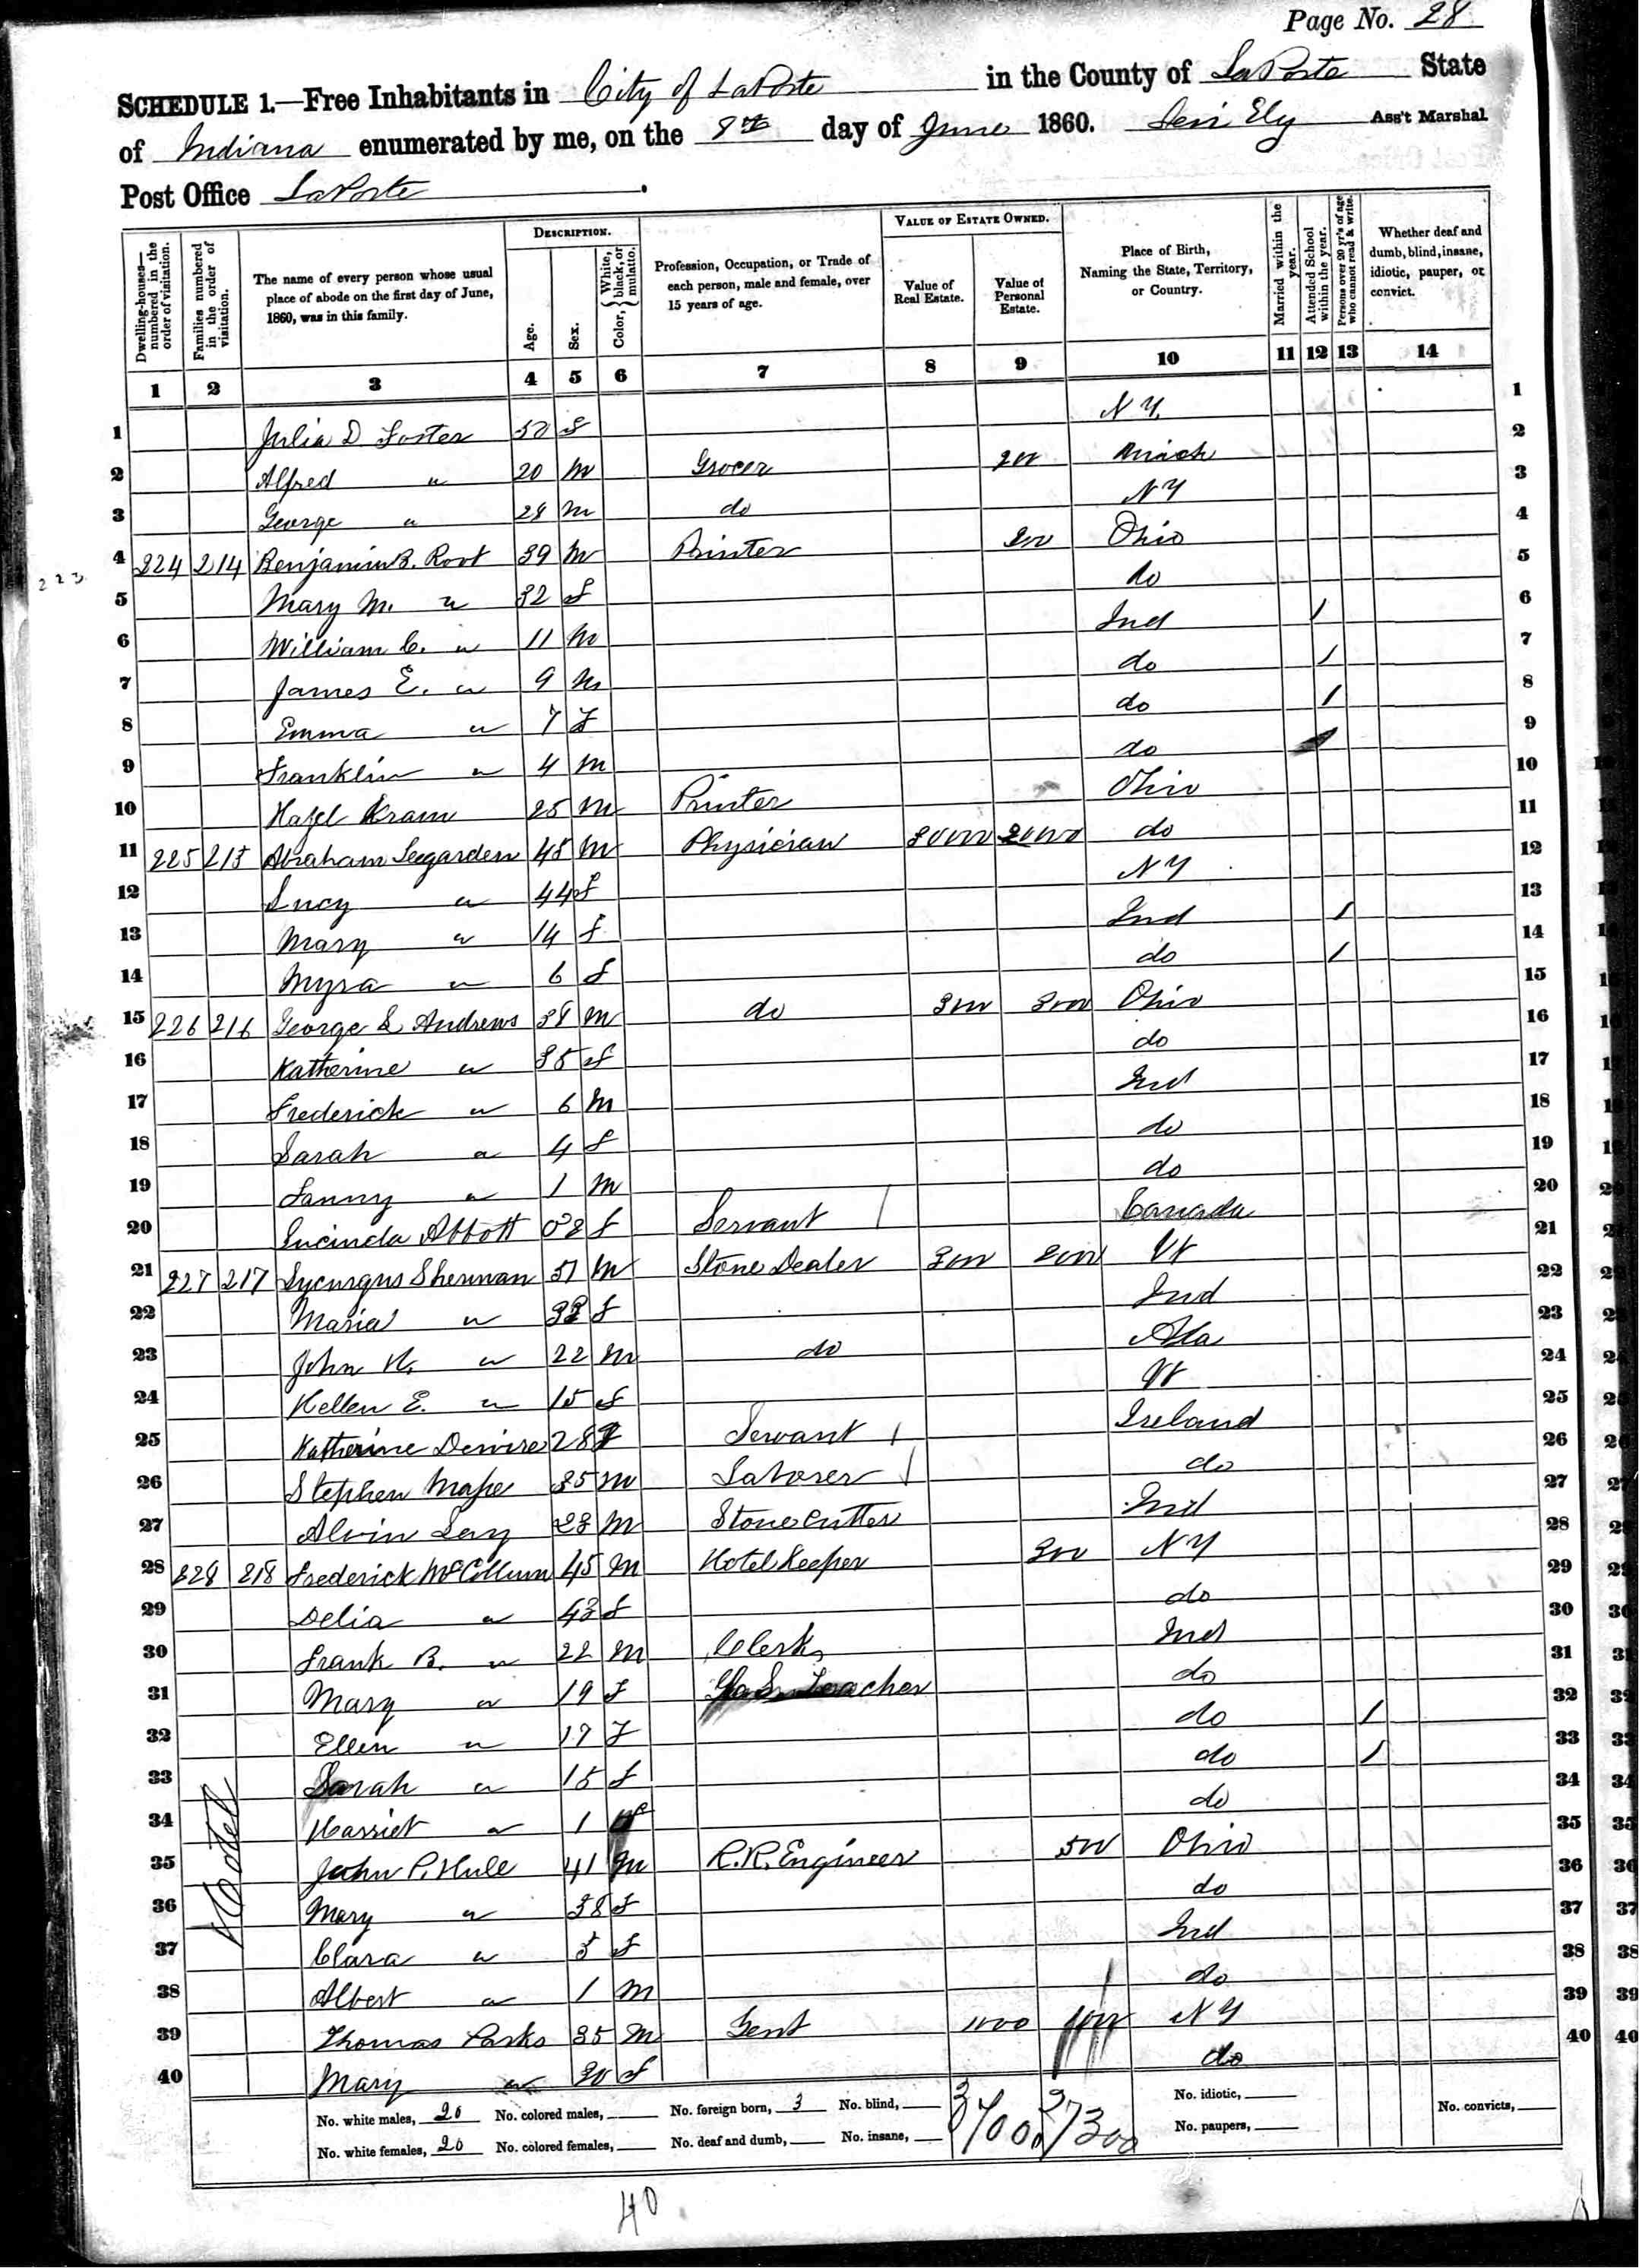 Page No. 28
SCHEDULE 1.—Free Inhabitants in City of LaPorte in the County of LaPorte State
of Indiana enumerated by me, on the 8th day of June 1860. Levi Ely Ass't Marshal
Post Office LaPorte
Dwelling-houses—numbered in the order of visitation.
Families numbered in the order of visitation.
The name of every person whose usual place of abode on the first day of June, 1860, was in this family.
DESCRIPTION.
Age.
Sex.
Color, White, black, or mulatto.
Profession, Occupation, or Trade of each person, male and female, over 15 years of age.
VALUE OF ESTATE OWNED.
Value of Real Estate.
Value of Personal Estate.
Place of Birth, Naming the State, Territory, or Country.
Married within the year.
Attended School within the year.
Persons over 20 yr's of age who cannot read & write.
Whether deaf and dumb, blind, insane, idiotic, pauper, or convict.
1 2 3 4 5 6 7 8 9 10 11 12 13 14
1 Julia D Foster 50 f N Y. 1
2 Alfred " 20 m Grocer 200 Mich 2
3 George " 28 m do N Y 3
223
4 224 214 Benjamin B. Root 39 m Printer 200 Ohio 4
5 Mary M. " 32 f do 5
6 William C. " 11 m Ind / 6
7 James E. " 9 m do / 7
8 Emma " 7 f do / 8
9 Franklin " 4 m do 9
10 Kram 25 m Printer Ohio 10
11 225 215 Abraham Teegarden 48 m Physician do 11
12 Lucy " 44 f N Y 12
13 Mary " 14 f Ind / 13
14 Myra " 6 f do / 14
15 226 216 George L Andrews 38 m do 3000 3000 Ohio 15
16 Katherine " 35 f do 16
17 Frederick " 6 m Ind 17
18 Sarah " 4 f do 18
19 Fanny " 1 m do 19
20 Lucinda Abbott f Servant / Canada 20
21 227 217 Lycurgus Sherman 51 m Stone Dealer 3000 2000 Vt 21
22 Maria " 33 f Ind 22
23 John H. " 22 m do Ala 23
24 Hellen E. " 15 f Vt 24
25 Katherine 28 f Servant / Ireland 25
26 Stephen Mape 35 m Laborer / do 26
27 Alvin 23 m Stone Cutter Ind 27
28 228 218 Frederick McCollum 45 m Hotel Keeper 300 N Y 28
29 Delia " 43 f do 29
30 Frank B. " 22 m Clerk Ind 30
31 Mary " 19 f Teacher do 31
32 Ellen " 17 f do / 32
33 Sarah " 15 f do / 33
Hotel
34 Harriet " 1 do 34
35 John P. Hule 41 m R.R. Engineer 500 Ohio 35
36 Mary " 38 f do 36
37 Clara " 5 f Ind 37
38 Albert " 1 m do 38
39 Thomas Parks 35 m Gent 1000 N Y 39
40 Mary " 30 f do 40
No. white males, 20 No. colored males, No. foreign born, 3 No. blind, No. idiotic, No. convicts,
No. white females, 20 No. colored females, No. deaf and dumb, No. insane, No. paupers,
37000 27300
40